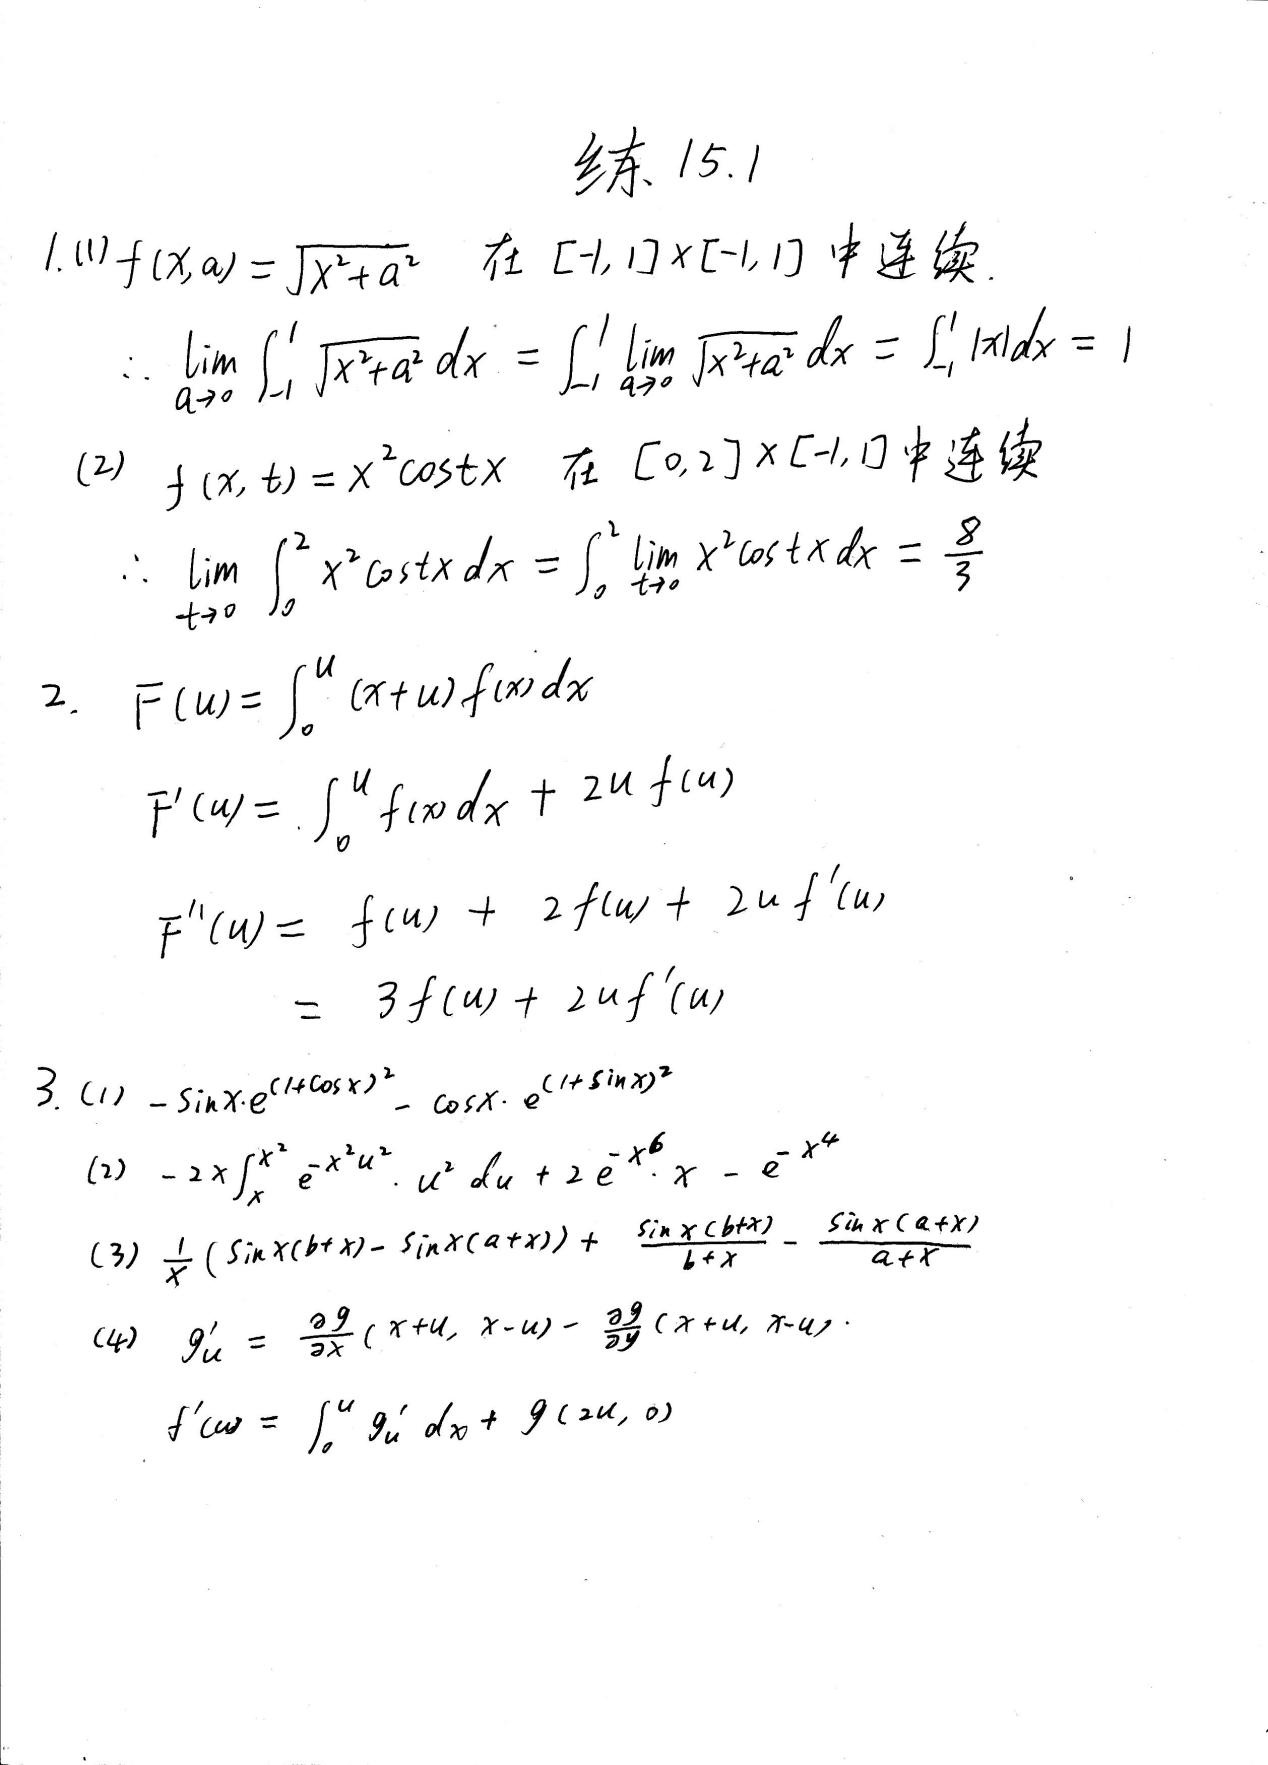 练 15.1
1. (1) f(x,a) = √(x²+a²) 在 [-1,1]×[-1,1] 中连续.
∴ lim_{a→0} ∫_{-1}^{1} √(x²+a²) dx = ∫_{-1}^{1} lim_{a→0} √(x²+a²) dx = ∫_{-1}^{1} |x|dx = 1
(2) f(x,t) = x²costx 在 [0,2]×[-1,1] 中连续
∴ lim_{t→0} ∫_0^2 x²costx dx = ∫_0^2 lim_{t→0} x²costx dx = 8/3
2. F(u) = ∫_0^u (x+u)f(x)dx
F'(u) = ∫_0^u f(x)dx + 2u f(u)
F''(u) = f(u) + 2f(u) + 2u f'(u)
= 3f(u) + 2uf'(u)
3. (1) -sinx·e^{(1+cosx)²} - cosx·e^{(1+sinx)²}
(2) -2x∫_x^{x²} e^{-x²u²}·u² du + 2e^{-x⁶}·x - e^{-x⁴}
(3) 1/x (sinx(b+x) - sinx(a+x)) + sinx(b+x)/(b+x) - sinx(a+x)/(a+x)
(4) g'_u = ∂g/∂x (x+u, x-u) - ∂g/∂y (x+u, x-u).
f'(u) = ∫_0^u g'_u dx + g(2u, 0)